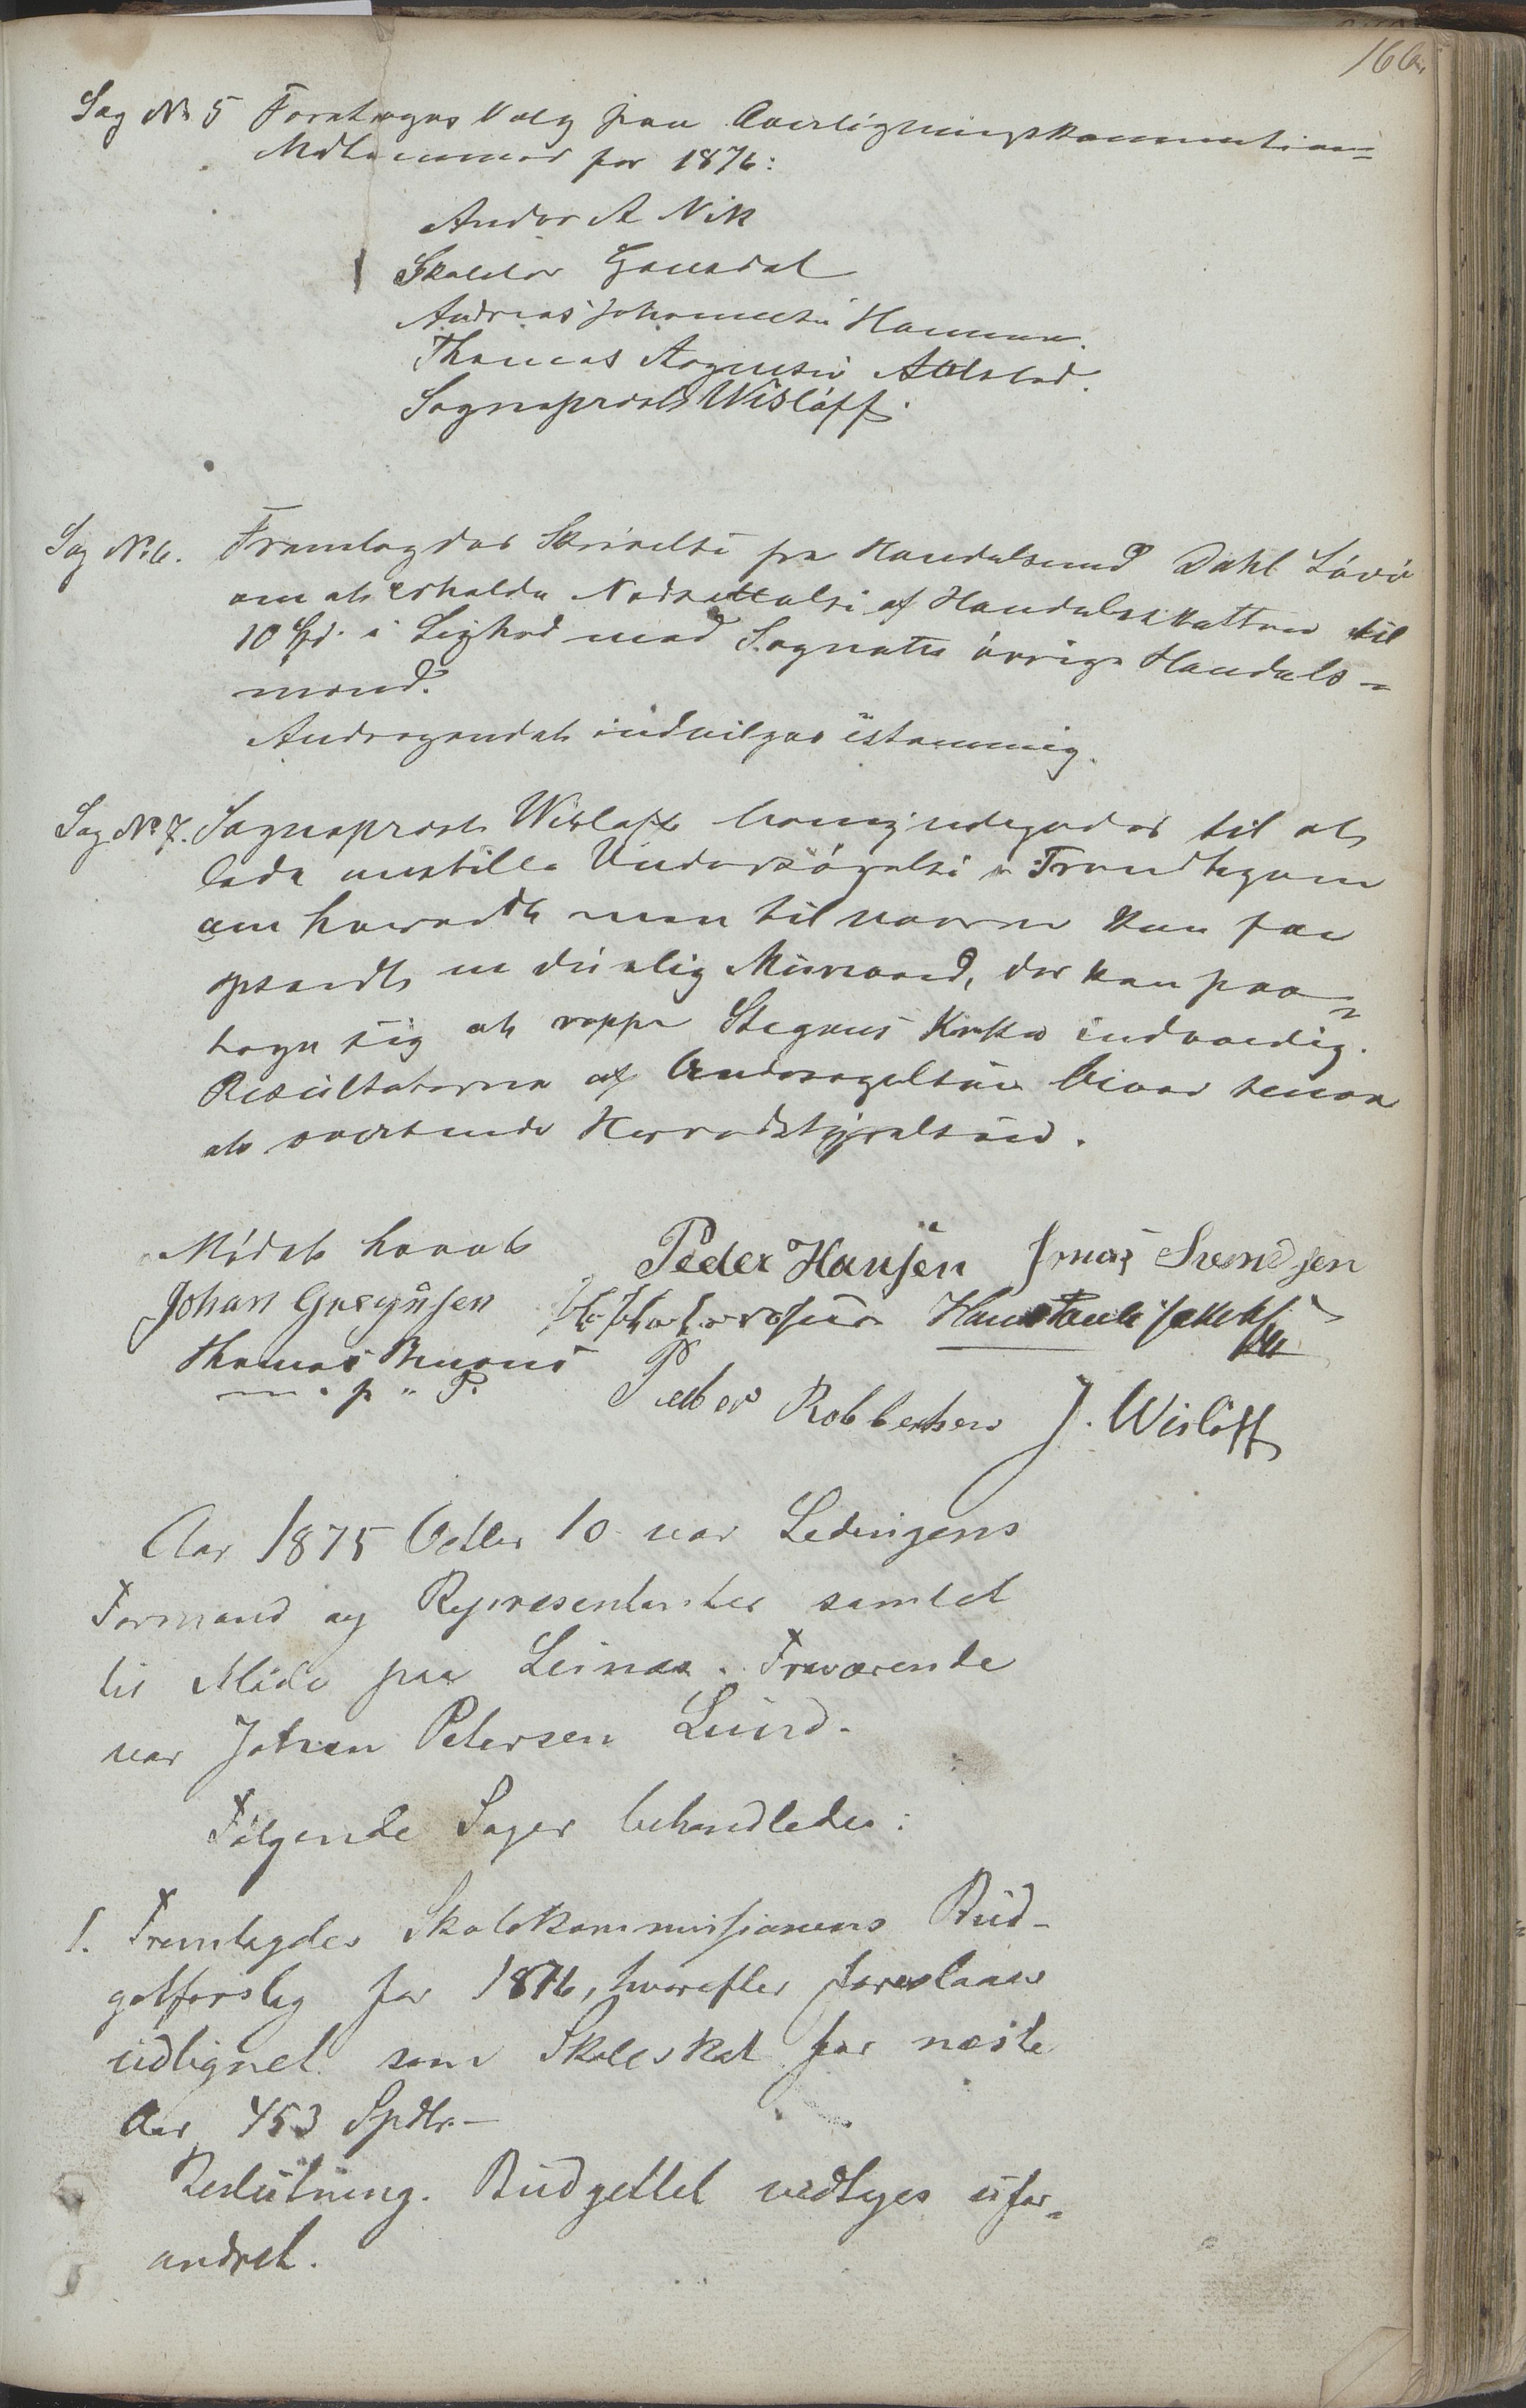 166
Sag No 5 Foretoges Valg paa Overligningskommitions=
Medlemmer for 1876:
Andor A Nik
Skoleler Gausdal
Andreas Johannesen Hamnen.
Thomas Aagnesen Allstad.
Sogneprest Wisløff.
Sag No 6. Fremlagdes Skrivelse fra Handelsmd Dahl Løvø
om at erholde Nedsettelse af Handelsskatten til
10 Spd. i Lighed med Sognets øvrige Handels=
mænd.
Andragendet indvilges enstemmig.
Sag No 7. Sogneprest Wisløff bemyndigedes til at
lade anstille Undersøgelse i Trondhjem
om hvorvidt man til vaaren kan faa
opsendt en duelig Murmand, der kan paa=
tage sig at rappe Stegens Kirke indvendig.
Resultaterne af Undersøgelsen bliver senere
at oversende Herredstyrelsen.
Mødet hævet
Peder Hansen Jonas Svendsen
Johan Gregusen Hans Paul Jakobs
Thomas Benoni
m. p. P.
Peder Robbertsen J. Wisløff
Aar 1875 Octbr 10 var Ledingens
Formænd og Representanter samlet
til Møde paa Leines. Fraværende
var Johan Petersen Lund.
Følgende Sager behandledes:
1. Fremlagdes Skolekommissionens Bud-
getforslag for 1876, hvorefter foreslaaes
udlignet som Skoleskat for næste
Aar 453 Spdlr.
Beslutning. Budgettet vedtages ufor=
andret.